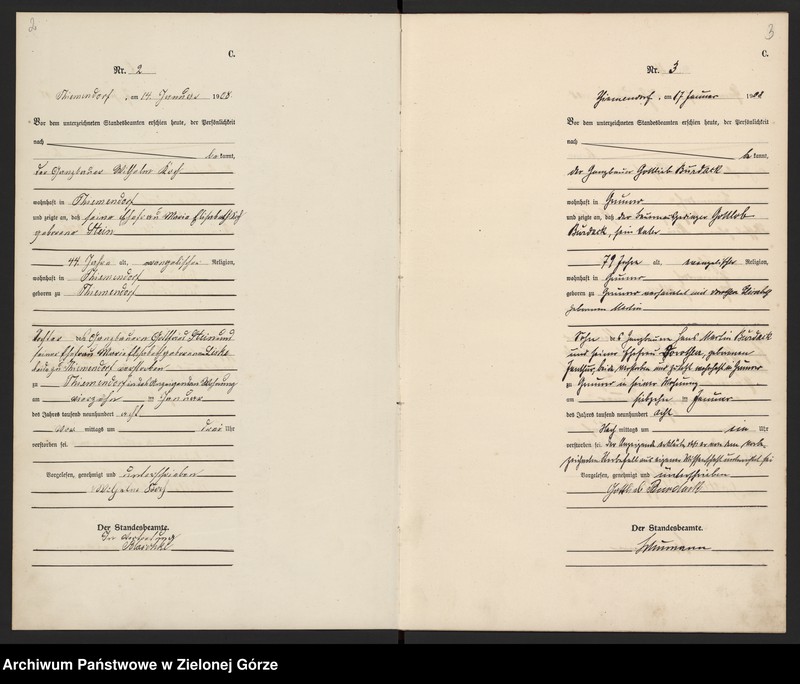 2
C.
Nr. 2
Thiemendorf, am 14. Januar 1908.
Vor dem unterzeichneten Standesbeamten erschien heute, der Persönlichkeit
nach
bekannt,
der Ganzbauer Wilhelm
wohnhaft in Thiemendorf
und zeigte an, daß seine Ehefrau Maria Elisabeth
geborene Stein
44 Jahre alt, evangelischer Religion,
wohnhaft in Thiemendorf
geboren zu Thiemendorf
Tochter des Ganzbauern Gottfried Stein und
seiner Ehefrau Maria Elisabeth geborenen
beide zu Thiemendorf verstorben
zu Thiemendorf in des Anzeigenden Wohnung
am vierzehn ten Januar
des Jahres tausend neunhundert acht
Vor mittags um drei Uhr
verstorben sei.
Vorgelesen, genehmigt und unterschrieben
Wilhelm
Der Standesbeamte.
In Vertretung
3
C.
Nr. 3
Thiemendorf, am 17. Januar 1908
Vor dem unterzeichneten Standesbeamten erschien heute, der Persönlichkeit
nach
bekannt,
der Ganzbauer Gottlieb Burdack
wohnhaft in
und zeigte an, daß der Gottlob
Burdack, sein Vater
79 Jahre alt, evangelischer Religion,
wohnhaft in
geboren zu verheiratet mit
geborenen Martin
Sohn des Ganzbauern Hans Martin Burdack
und seiner Ehefrau Dorothea, geborenen
beide verstorben und zuletzt wohnhaft in
zu in seiner Wohnung
am siebzehn ten Januar
des Jahres tausend neunhundert acht
Nach mittags um ein Uhr
verstorben sei. Der Anzeigende erklärte, daß er von dem vorbe-
zeichneten Sterbefall aus eigener Wissenschaft unterrichtet sei
Vorgelesen, genehmigt und unterschrieben
Gottlieb Burdack
Der Standesbeamte.
Schumann
Archiwum Państwowe w Zielonej Górze